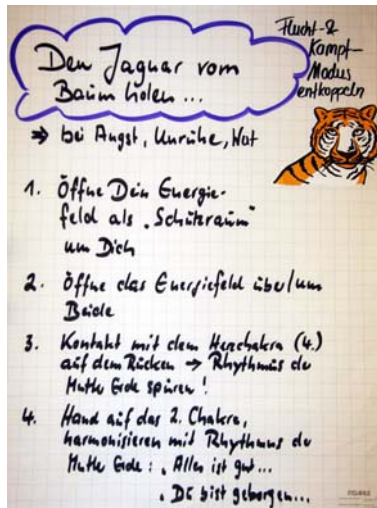 Flucht- &
Kampf-
Modus
entkoppeln
Den Jaguar vom
Baum holen...
⇒ bei Angst, Unruhe, Wut
1. Öffne Dein Energie-
feld als „Schutzraum"
um Dich
2. Öffne das Energiefeld über/um
Beide
3. Kontakt mit dem Herzchakra (4.)
auf dem Rücken → Rhythmus der
Mutter Erde spüren!
4. Hand auf das 2. Chakra,
harmonisieren mit Rhythmus der
Mutter Erde: „Alles ist gut...
„Du bist geborgen...